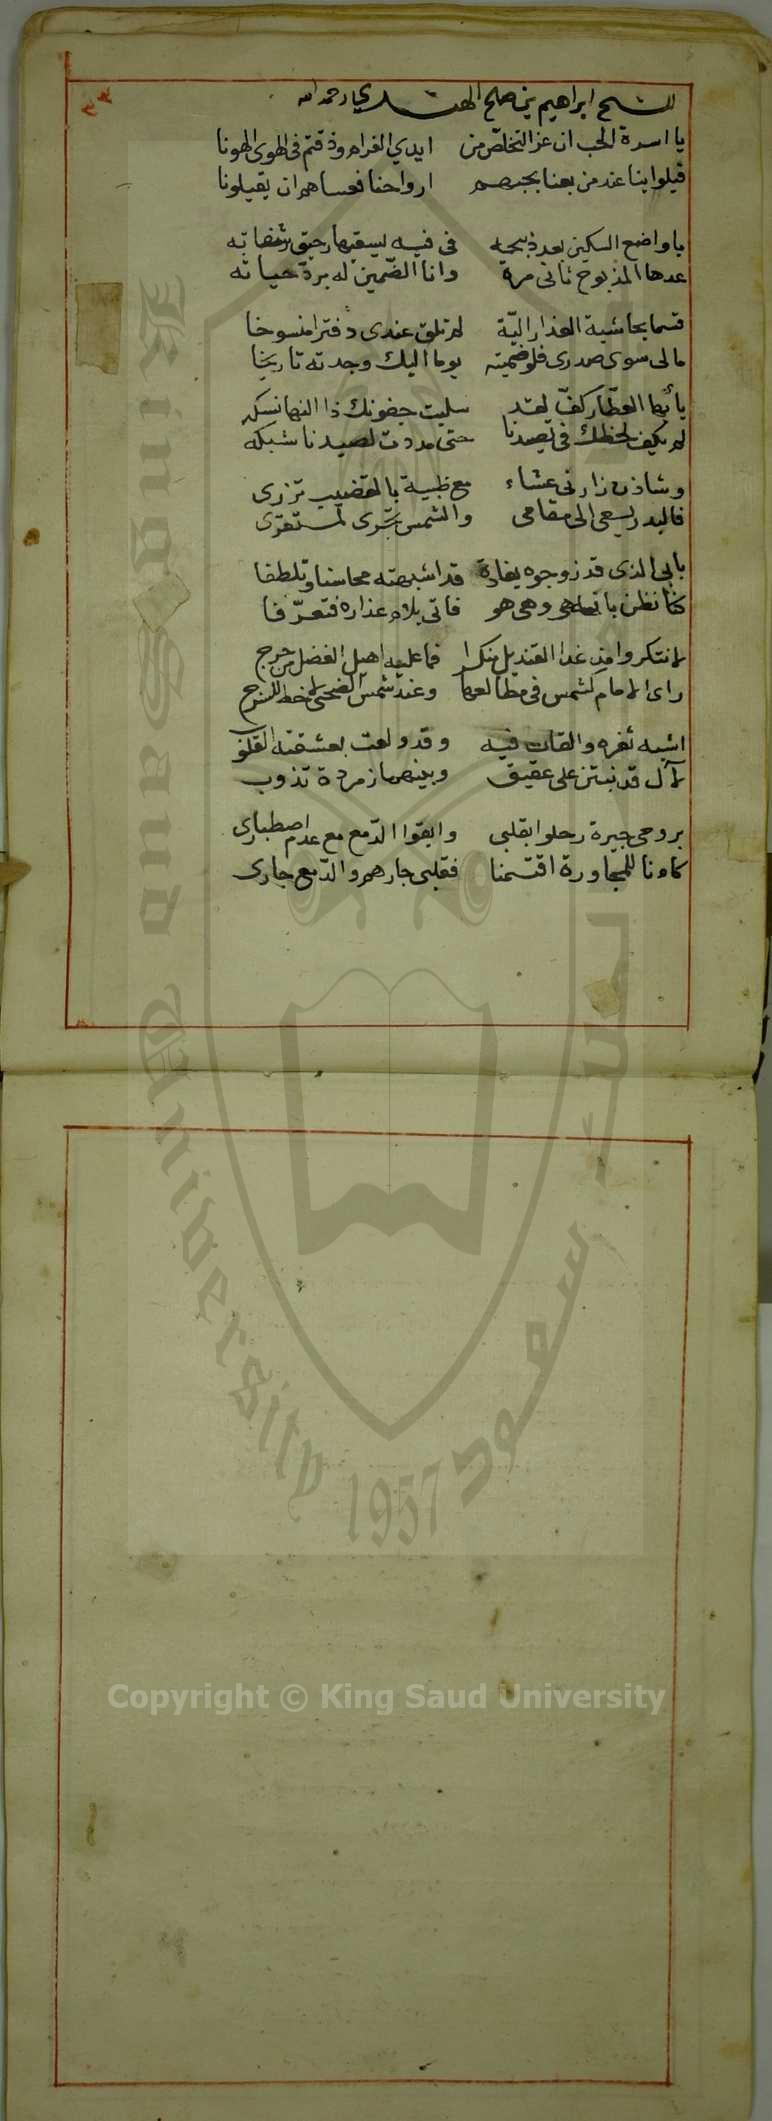 ٣٣
للشيخ ابراهيم بن صالح الهندي رحمه الله
يا اسرة الحب ان عز التخلص من ايدي الغرام وذقتم في الهوى الهونا
قيلوا بنا عند من بعنا بحبهم ارواحنا فعساهم ان يقيلونا
يا واضع السكين بعد ذبحه في فيه يسقيها رحيق رضابه
عدها المذبوح ثاني مرة وانا الضمين له برد حياته
قسما بحاشية العذار اليّة لم تلق عندي دفترا منسوخا
مالى سوى صدرى فلو ضميته يوما اليك وجدته تاريخا
يا أيها العطار كفّ لقد سلبت جفونك ذا النهانسكه
لم يكف لحظك في تصيدنا حتى مددت لصيدنا شبكه
وشادن زارنى عشاء مع ظبية بالقضيب تزرى
فالبدر يسعى الى مقامى والشمس تجرى لمستقرى
بابي الذى قد زوجوه بغادة قد اشبهته محاسنا وتلطفا
كنا نظن بانه هي وهي هو فاتى بلام عذاره فتعرّفا
لا تنكروا من غدا القنديل منكرا فما عليه اهيل الفضل من حرج
راى الامام كشمس في مطالعها وعند شمس الضحى لا حظ للسرج
اشبه ثغره والقات فيه وقد ولعت بعشقته القلوب
لآل قد نبتن على عقيق وبينهما زمردة تذوب
بروحى جيرة رحلوا بقلبى وابقوا الدّمع مع عدم اصطبارى
كاننا للمجاورة اقتسمنا فقلبى جارهم والدّمع جارى
King Saud University 1957
سعود
Copyright © King Saud University